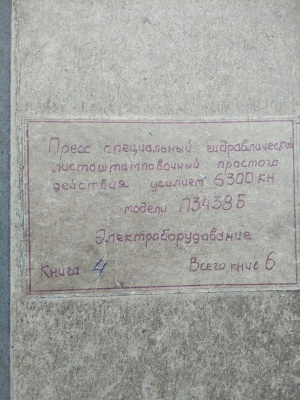 Пресс специальный гидравлический
листоштамповочный простого
действия усилием 6300 кн
модели П3438Б
Электрооборудование
Книга 4 Всего книг 6